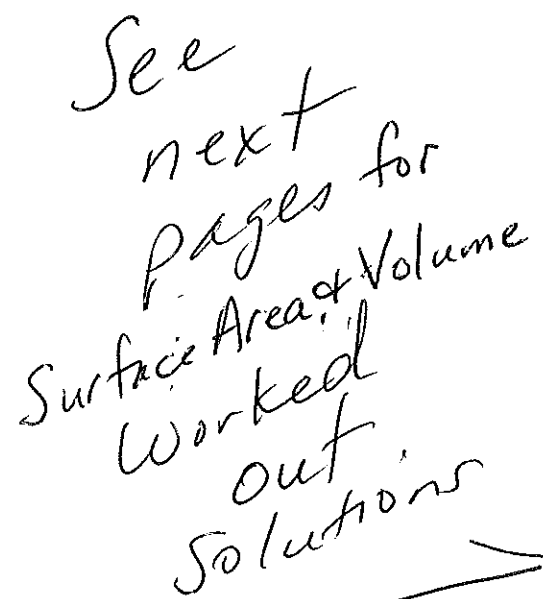 See
next
pages for
Surface Area & Volume
Worked
out
Solutions